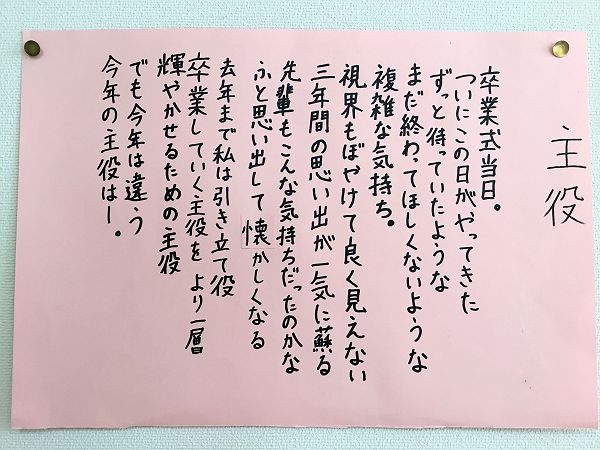 主役
卒業式当日。
ついにこの日がやってきた
ずっと待っていたような
まだ終わってほしくないような
複雑な気持ち。
視界もぼやけて良く見えない
三年間の思い出が一気に蘇る
先輩もこんな気持ちだったのかな
ふと思い出して懐かしくなる
去年まで私は引き立て役
卒業していく主役をより一層
輝やかせるための主役
でも今年は違う
今年の主役はー。